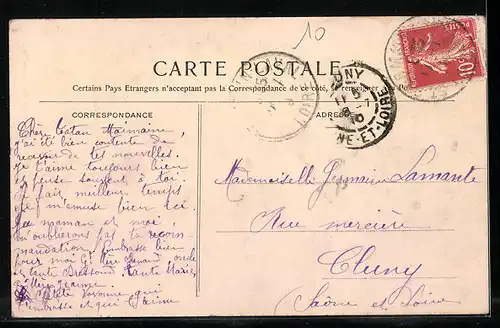 10
CARTE POSTALE
Certains Pays Etrangers n'acceptent pas la Correspondance de ce côté, se renseigner à la Po
CORRESPONDANCE
ADRES
CLUNY
11 5
8 -1
10
NE-ET-LOIRE
LOIRE
10
Chère tatan
j'ai été bien contente de
recevoir de tes nouvelles.
Je t'aime toujours bien
et pense souvent à toi.
Il fait meilleur temps
je m'amuse bien ici.
Ma maman et moi
n'oublierons pas ta recom-
mandation. Embrasse bien
pour moi oncle
et tante tante Marie
Ta petite qui
t'embrasse et qui t'aime
Mademoiselle Germaine Lamante
Rue mercière
Cluny
Saône et Loire